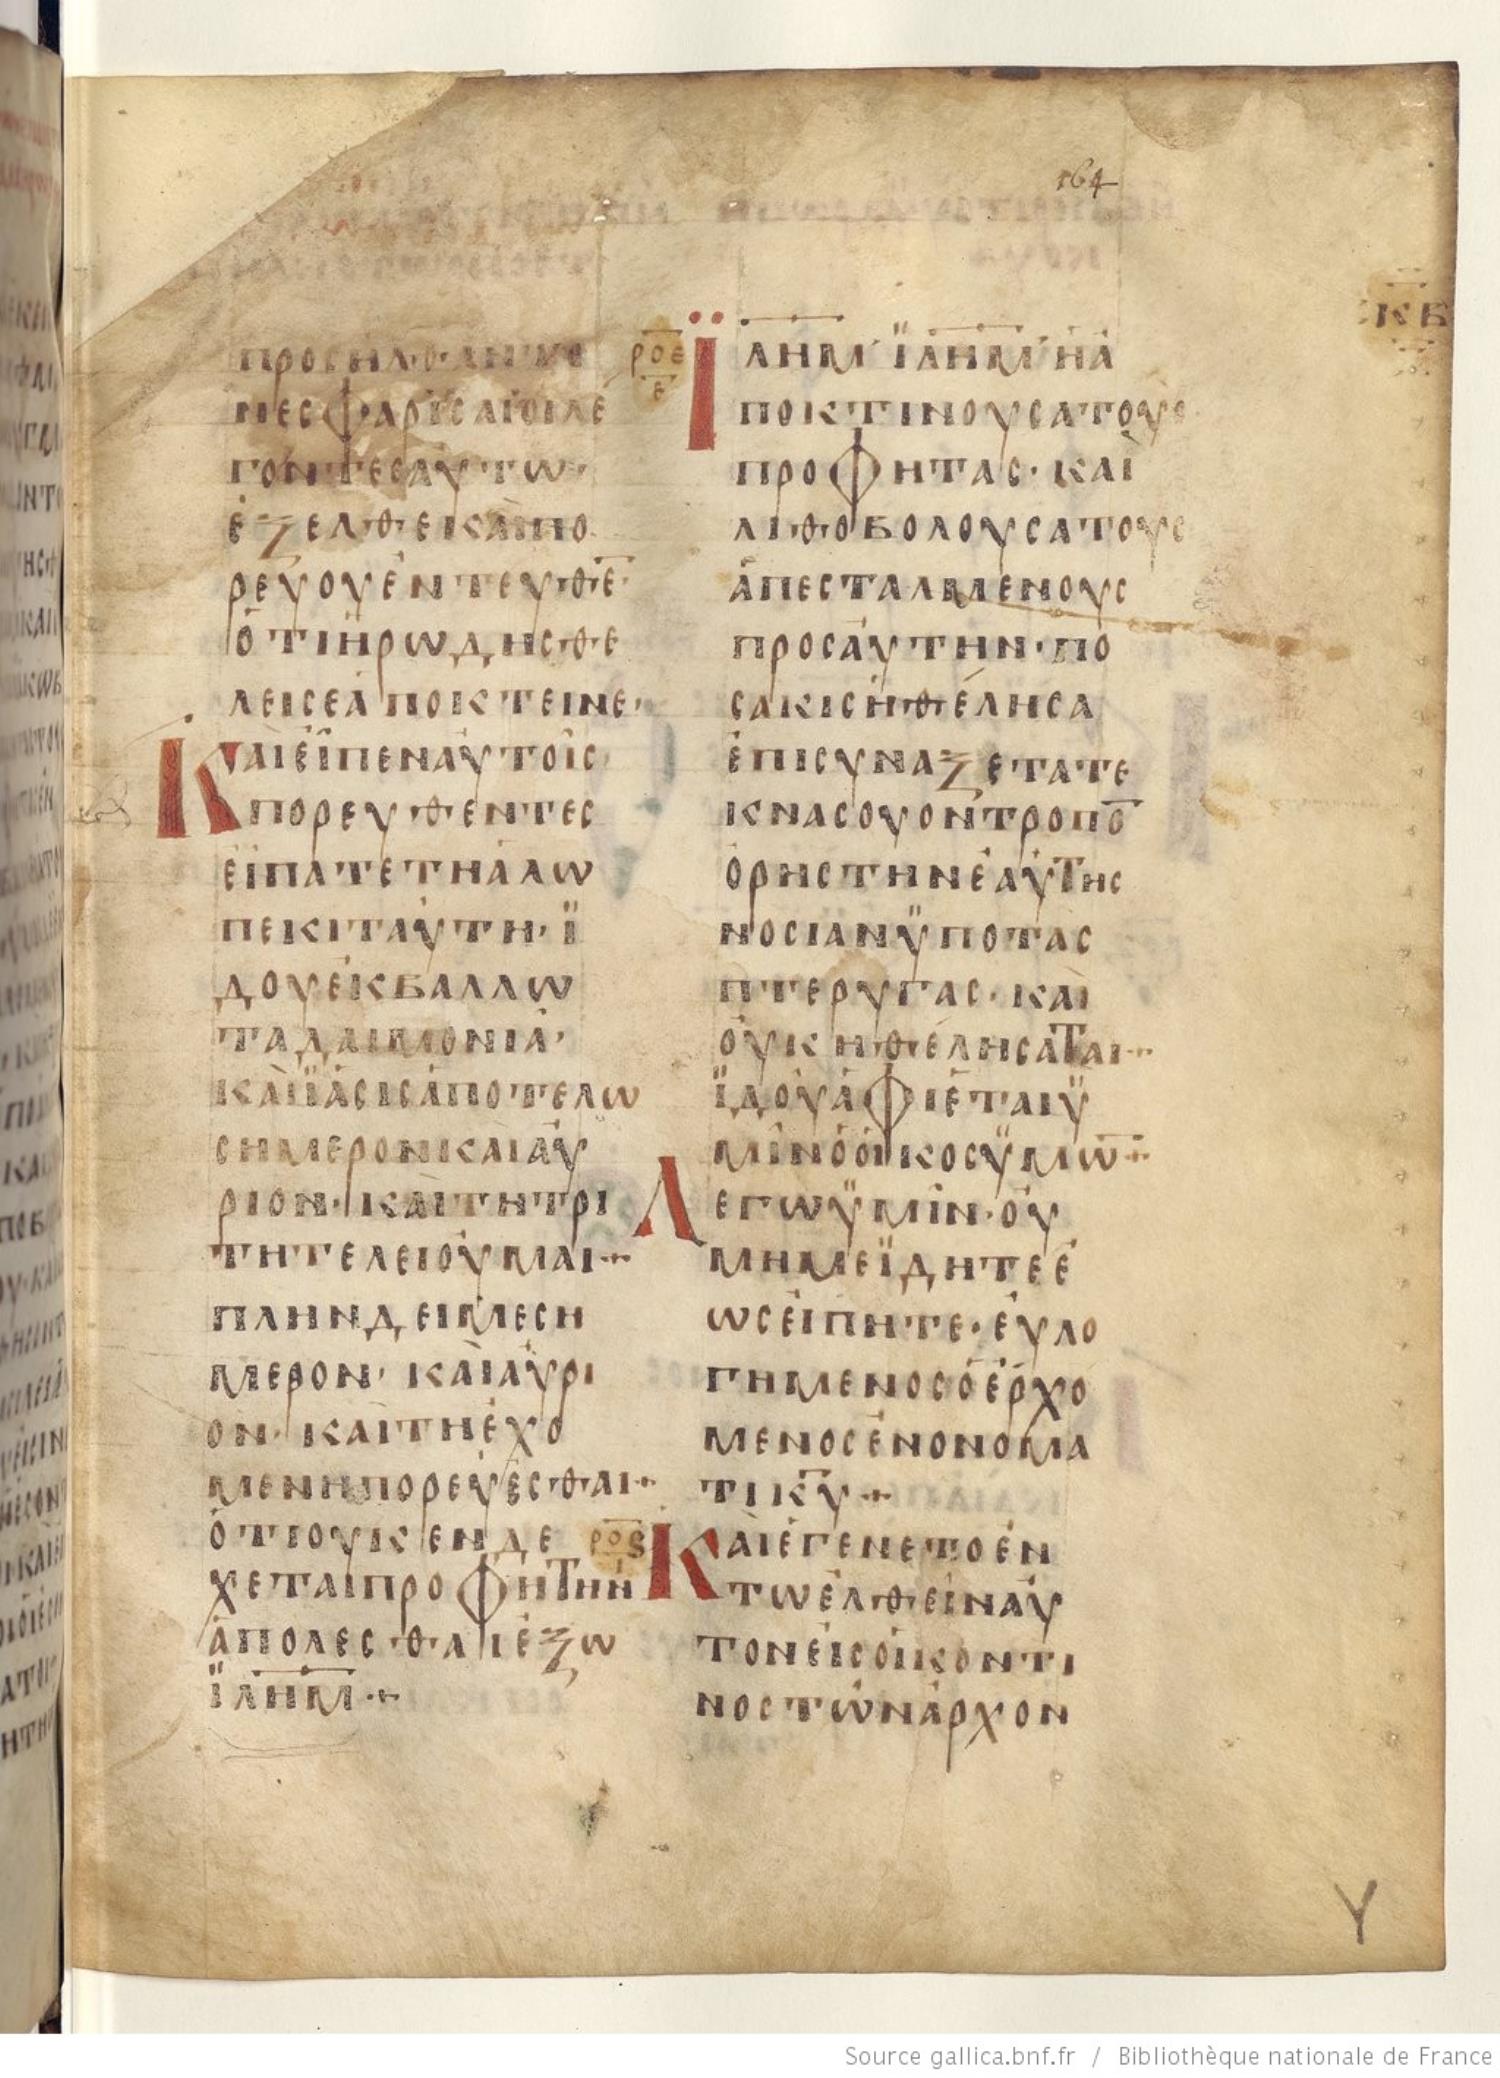 164
ΚΒ
ΠΡΟСΗΛΘΑΝ
ΝΕСΦΑΡΙСΑΙΟΙΛΕ
ΓΟΝΤΕСΑΥΤΩ·
ΕΞΕΛΘΕΚΑΙΠΟ
ΡΕΥΟΥΕΝΤΕΥΘΕ̅·
ΟΤΙΗΡΩΔΗСΘΕ
ΛΕΙСΕΑΠΟΚΤΕΙΝΕ·
ΚΑΙΕΙΠΕΝΑΥΤΟΙС
ΠΟΡΕΥΘΕΝΤΕС
ΕΙΠΑΤΕΤΗΑΛΩ
ΠΕΚΙΤΑΥΤΗ·Ϊ
ΔΟΥΕΚΒΑΛΛΩ
ΤΑΔΑΙΜΟΝΙΑ·
ΚΑΙΪΑСΙСΑΠΟΤΕΛΩ
СΗΜΕΡΟΝΚΑΙΑΥ
ΡΙΟΝ·ΚΑΙΤΗΤΡΙ
ΤΗΤΕΛΕΙΟΥΜΑΙ·
ΠΛΗΝΔΕΙΜΕСΗ
ΜΕΡΟΝ·ΚΑΙΑΥΡΙ
ΟΝ·ΚΑΙΤΗΕΧΟ
ΜΕΝΗΠΟΡΕΥΕСΘΑΙ·
ΟΤΙΟΥΚΕΝΔΕ
ΧΕΤΑΙΠΡΟΦΗΤΗΝ
ΑΠΟΛΕСΘΑΙΕΞΩ
ΪΛΗΜ·
ΡΟΕ
Ε
ΪΛΗΜ ΪΛΗΜΗΑ
ΠΟΚΤΙΝΟΥСΑΤΟΥС
ΠΡΟΦΗΤΑС·ΚΑΙ
ΛΙΘΟΒΟΛΟΥСΑΤΟΥС
ΑΠΕСΤΑΛΜΕΝΟΥС
ΠΡΟСΑΥΤΗΝ·ΠΟ
СΑΚΙСΗΘΕΛΗСΑ
ΕΠΙСΥΝΑΞΕΤΑΤΕ
ΚΝΑСΟΥΟΝΤΡΟΠΟ̅
ΟΡΗСΤΗΝΕΑΥΤΗС
ΝΟСΙΑΝΫΠΟΤΑС
ΠΤΕΡΥΓΑС·ΚΑΙ
ΟΥΚΗΘΕΛΗСΑΤΑΙ·
ΪΔΟΥΑΦΙΕΤΑΙΫ
ΜΙΝΟΟΙΚΟСΫΜΩ̅·
ΛΕΓΩΫΜΙΝ·ΟΥ
ΜΗΜΕΪΔΗΤΕΕ
ΩСΕΙΠΗΤΕ·ΕΥΛΟ
ΓΗΜΕΝΟСΟΕΡΧΟ
ΜΕΝΟСΕΝΟΝΟΜΑ
ΤΙΚ̅Υ̅·
ΡΟϚ
ΚΑΙΕΓΕΝΕΤΟΕΝ
ΤΩΕΛΘΕΙΝΑΥ
ΤΟΝΕΙСΟΙΚΟΝΤΙ
ΝΟСΤΩΝΑΡΧΟΝ
Y
Source gallica.bnf.fr / Bibliothèque nationale de France